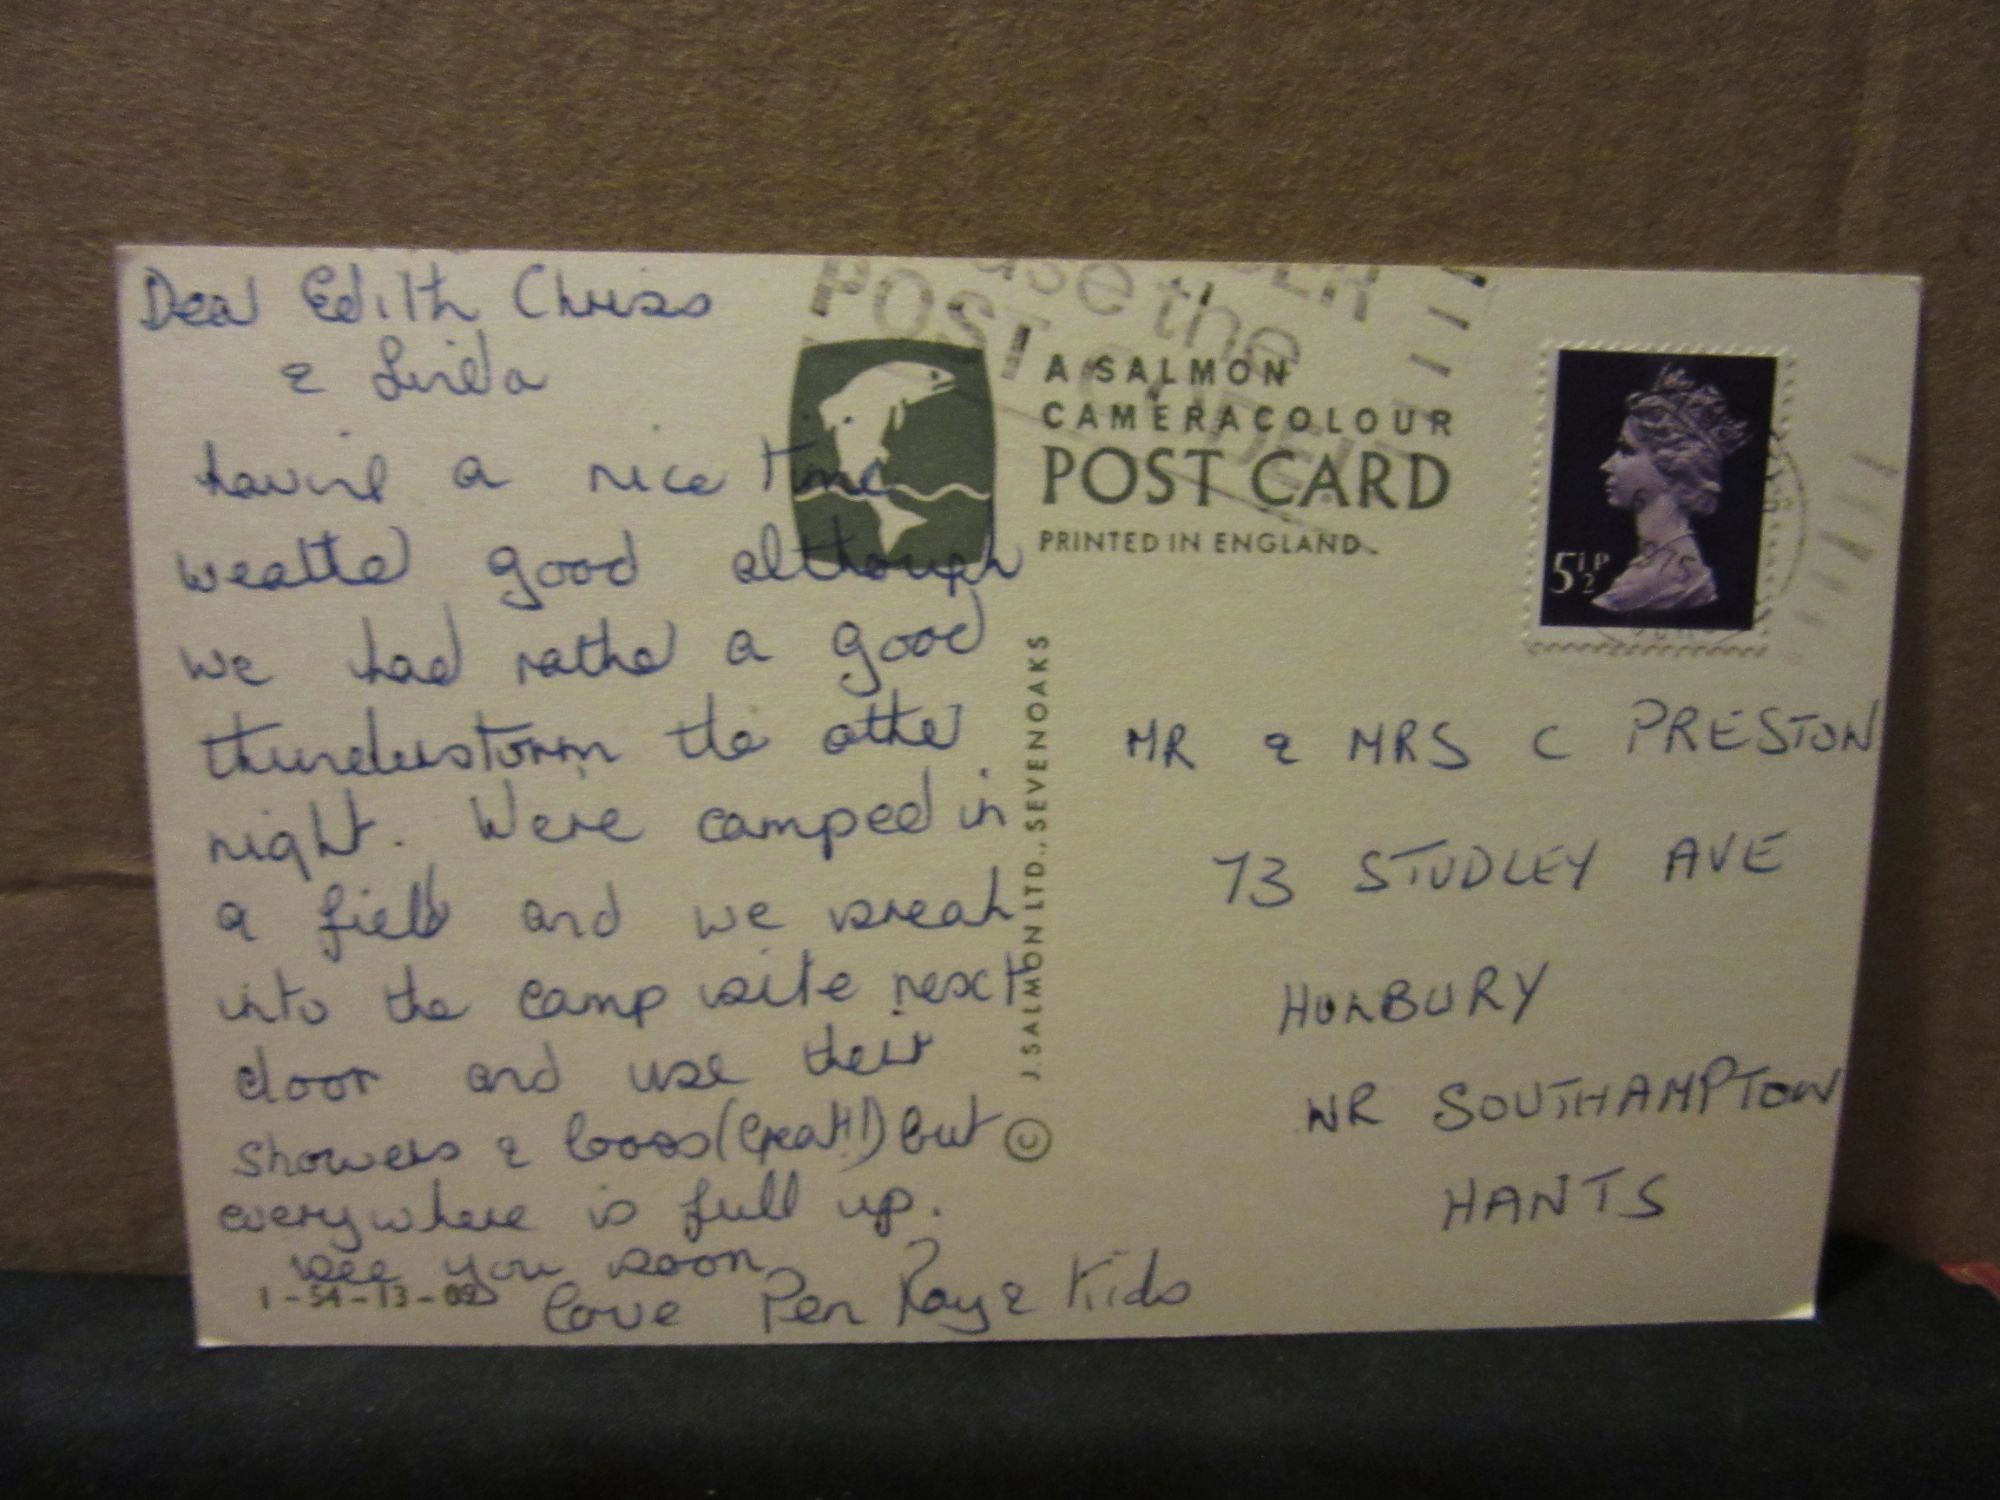 Dear Edith Chriss
& Linda
having a nice time
weather good although
we had rather a good
thunderstorm the other
night. Were camped in
a field and we sneak
into the camp site next
door and use their
showers & loos (Great!!) but
everywhere is full up.
see you soon
love Pen Ray & Kids
1-54-13-09
use the
POST
A SALMON
CAMERACOLOUR
POST CARD
PRINTED IN ENGLAND.
© J. SALMON LTD., SEVENOAKS
5½P
1975
MR & MRS C PRESTON
73 STUDLEY AVE
HOLBURY
NR SOUTHAMPTON
HANTS